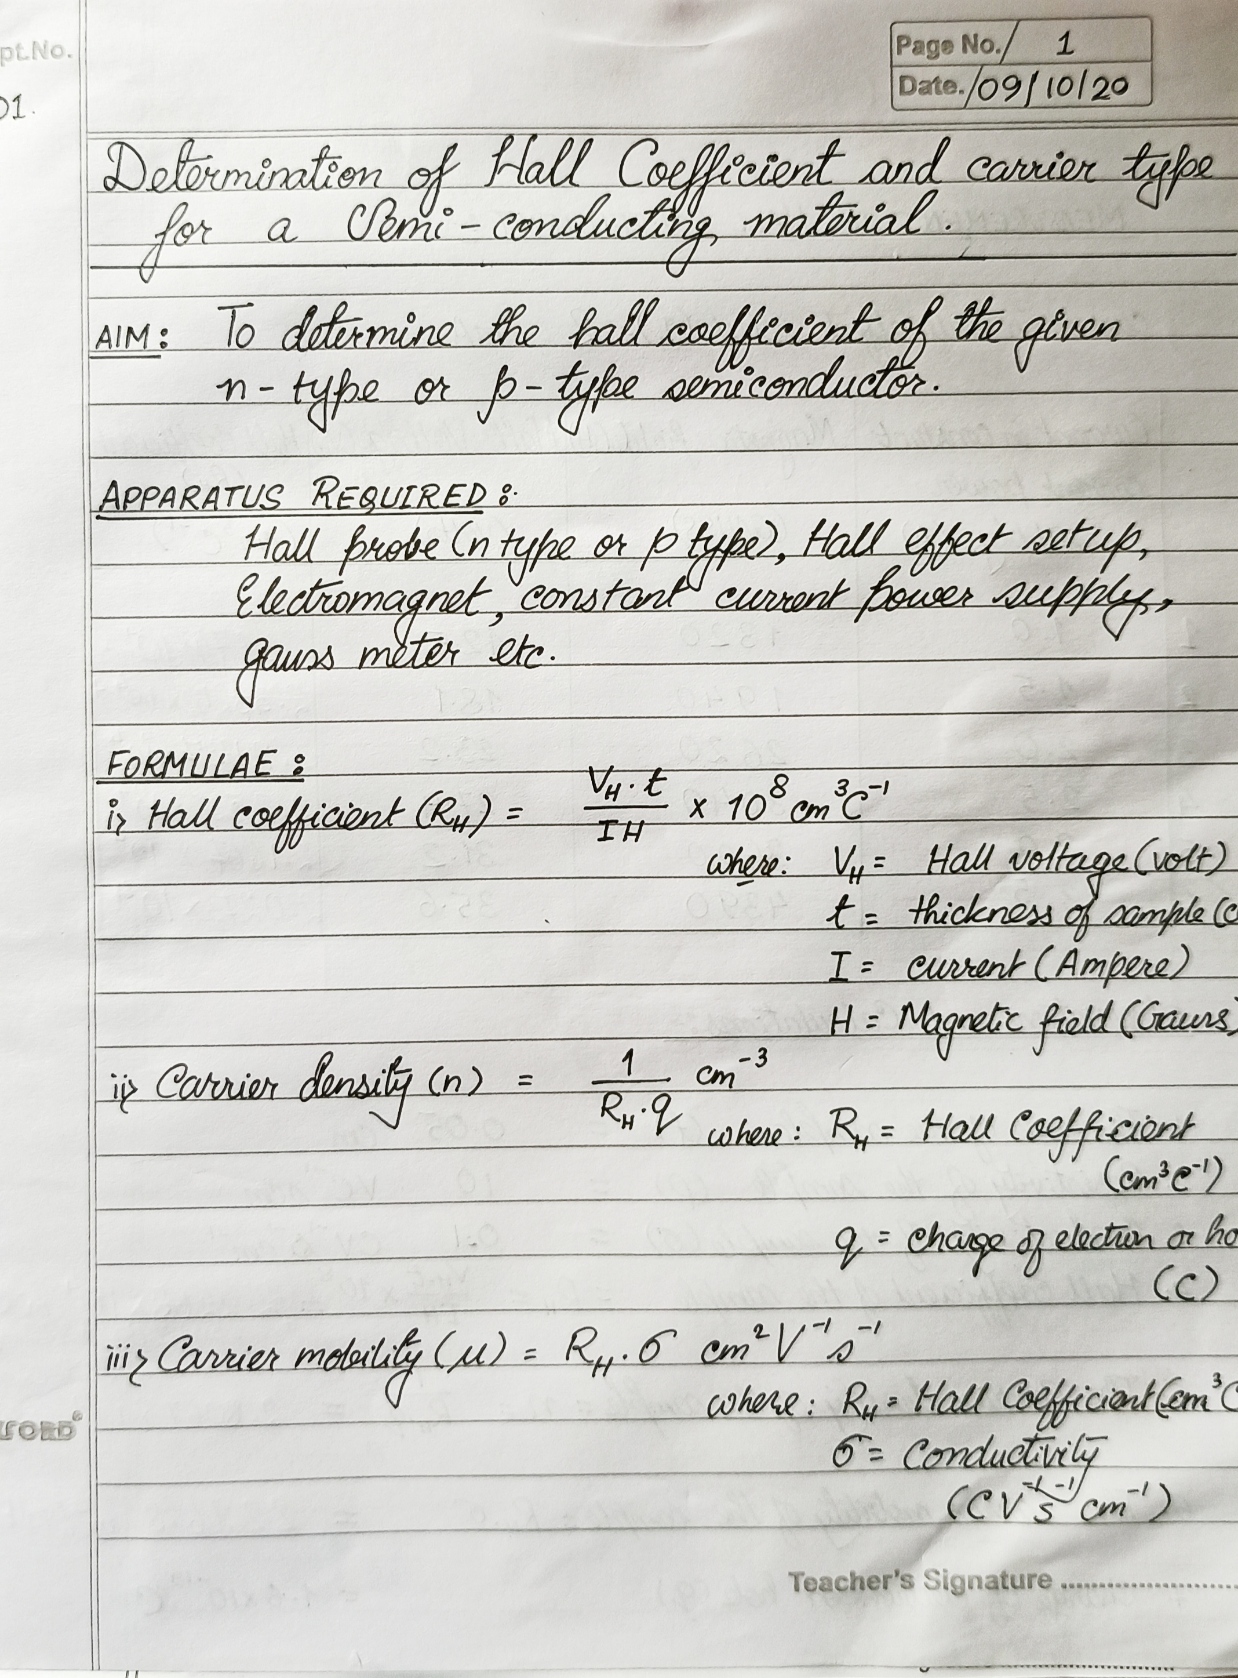 pt.No.
Page No. 1
Date. 09/10/20
01.
Determination of Hall Coefficient and carrier type
for a Semi-conducting material.
AIM: To determine the hall coefficient of the given
n-type or p-type semiconductor.
APPARATUS REQUIRED:
Hall probe (n type or p type), Hall effect setup,
Electromagnet, constant current power supply,
gauss meter etc.
FORMULAE:
i> Hall coefficient (R_H) = V_H·t / IH × 10⁸ cm³C⁻¹
where: V_H = Hall voltage (volt)
t = thickness of sample (c
I = current (Ampere)
H = Magnetic field (Gauss)
ii> Carrier density (n) = 1 / R_H·q cm⁻³
where: R_H = Hall Coefficient
(cm³C⁻¹)
q = charge of electron or ho
(C)
iii> Carrier mobility (μ) = R_H·σ cm²V⁻¹s⁻¹
where: R_H = Hall Coefficient (cm³C
σ = Conductivity
(CV⁻¹s⁻¹cm⁻¹)
Teacher's Signature